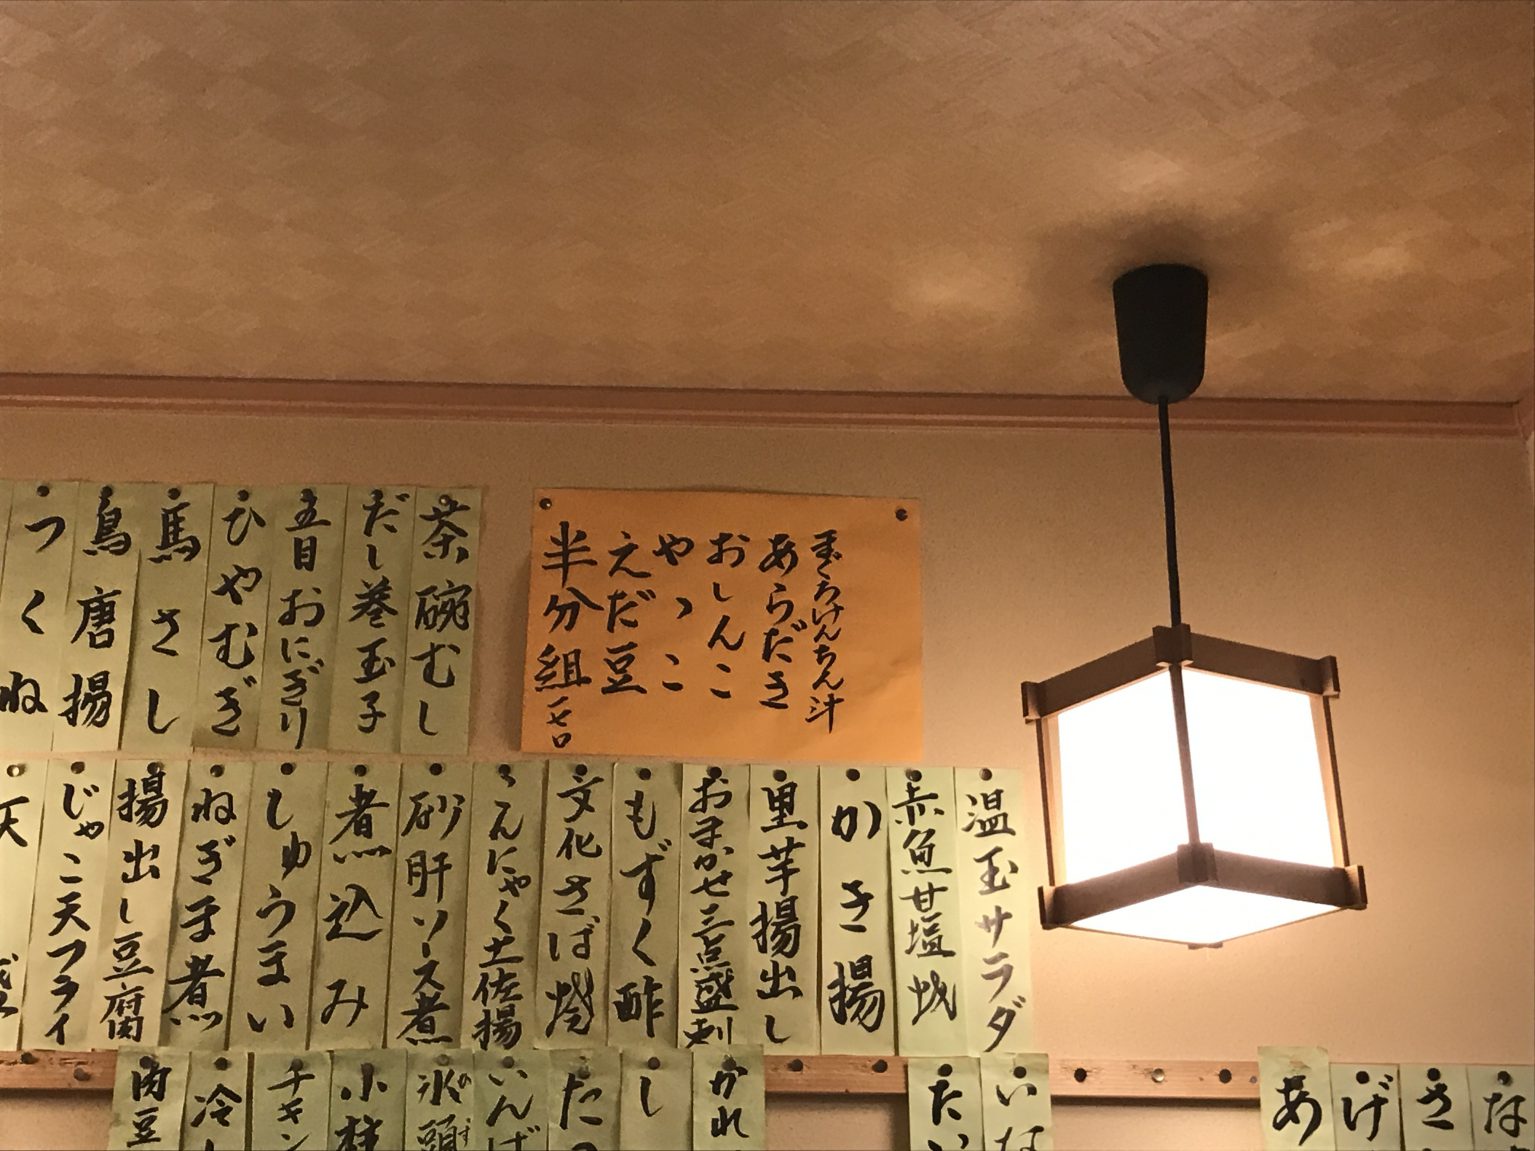 茶碗むし
だし巻玉子
五目おにぎり
ひやむぎ
馬さし
鳥唐揚
つくね
あらだき
おしんこ
やっこ
えだ豆
半分組
温玉サラダ
赤魚甘塩焼
かき揚
里芋揚出し
おまかせ三点盛刺
もずく酢
文化さば焼
こんにゃく土佐揚
砂肝ソース煮
煮込み
しゅうまい
ねぎま煮
揚出し豆腐
じゃこ天フライ
天
な
さ
あげ
いな
たい
かれ
し
いんげ
氷頭
小柱
チキン
冷し
肉豆